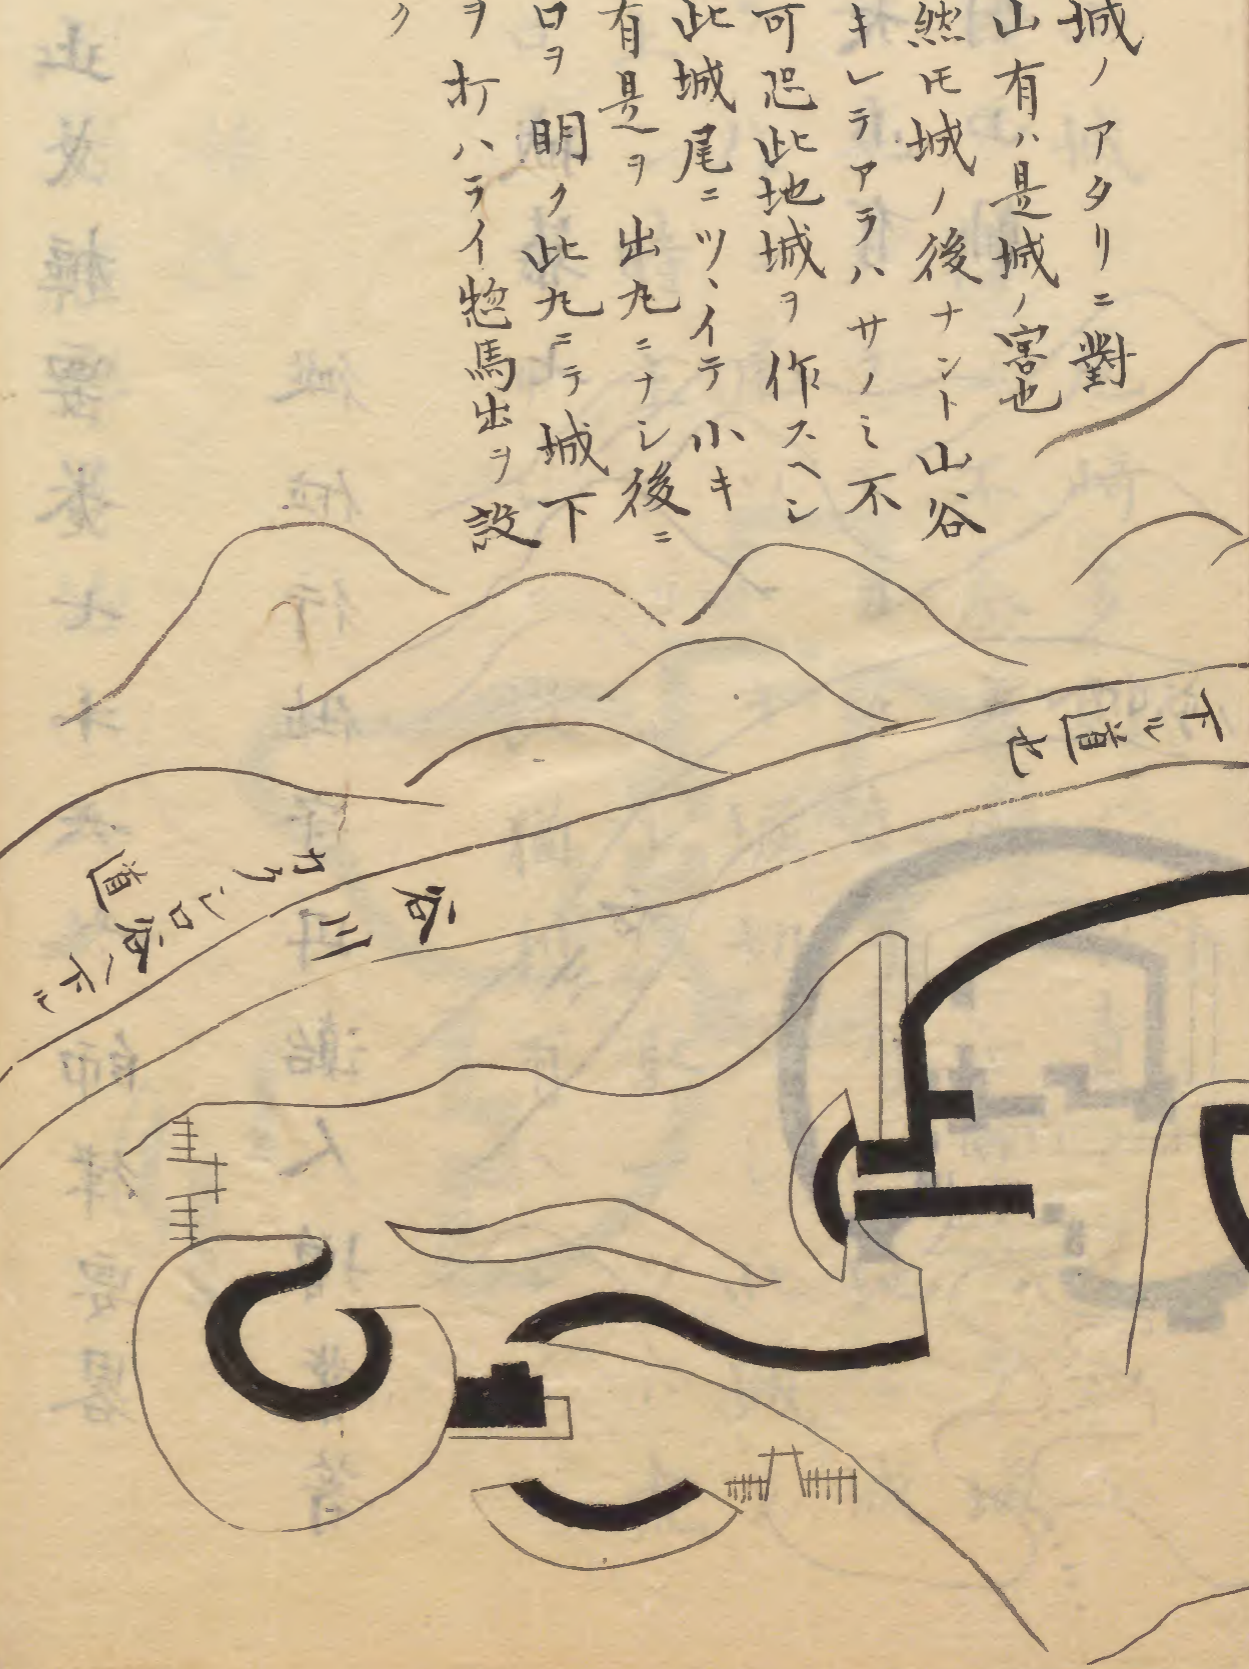 城ノアタリニ對
山有ハ是城ノ害也
然モ城ノ後ナント山谷
キレテアラハサノミ不
可恐此地城ヲ作スヘシ
此城尾ニツヽイテ小キ
有是ヲ出丸ニナシ後ニ
口ヲ明ク此丸ニテ城下
ヲ打ハライ惣馬出ヲ設
ク
下ル道也
谷川
カクシ口
道谷ヘ下ル